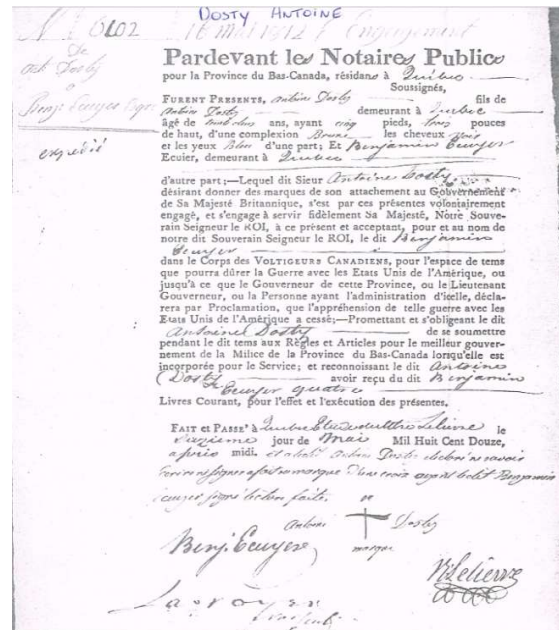 DOSTY ANTOINE
N 6102 16 mai 1812 Engagement
De
Ant Dosty
a
Benj Ecuyer Esqre
expedié
Pardevant les Notaires Publics
pour la Province du Bas-Canada, résidans à Québec
Soussignés,
FURENT PRESENTS, Antoine Dosty fils de
Antoine Dosty demeurant à Quebec
âgé de ans, ayant cinq pieds, trois pouces
de haut, d'une complexion Brune les cheveux noir
et les yeux Bleu d'une part; Et Benjamin Ecuyer
Ecuier, demeurant à Quebec
d'autre part;—Lequel dit Sieur Antoine Dosty
désirant donner des marques de son attachement au Gouvernement
de Sa Majesté Britannique, s'est par ces présentes volontairement
engagé, et s'engage à servir fidèlement Sa Majesté, Nôtre Souve-
rain Seigneur le ROI, à ce présent et acceptant, pour et au nom de
notre dit Souverain Seigneur le ROI, le dit Benjamin
Ecuyer
dans le Corps des VOLTIGEURS CANADIENS, pour l'espace de tems
que pourra dûrer la Guerre avec les Etats Unis de l'Amérique, ou
jusqu'à ce que le Gouverneur de cette Province, ou le Lieutenant
Gouverneur, ou la Personne ayant l'administration d'icelle, décla-
rera par Proclamation, que l'appréhension de telle guerre avec les
Etats Unis de l'Amérique a cessé;—Promettant et s'obligeant le dit
Antoine Dosty de se soumettre
pendant le dit tems aux Règles et Articles pour le meilleur gouver-
nement de la Milice de la Province du Bas-Canada lorsqu'elle est
incorporée pour le Service; et reconnoissant le dit Antoine
Dosty avoir reçu du dit Benjamin
Ecuyer quatre
Livres Courant, pour l'effet et l'exécution des présentes.
FAIT et PASSE' à Quebec Etude de Mtre Lelievre le
Seizieme jour de Mai Mil Huit Cent Douze,
après midi. et a ledit Antoine Dosty declaré ne savoir
ecrire ni signer a fait sa marque d'une croix Benjamin
Ecuyer signé lecture faite
Antoine Dosty
marque
Benj. Ecuyer
R Lelievre